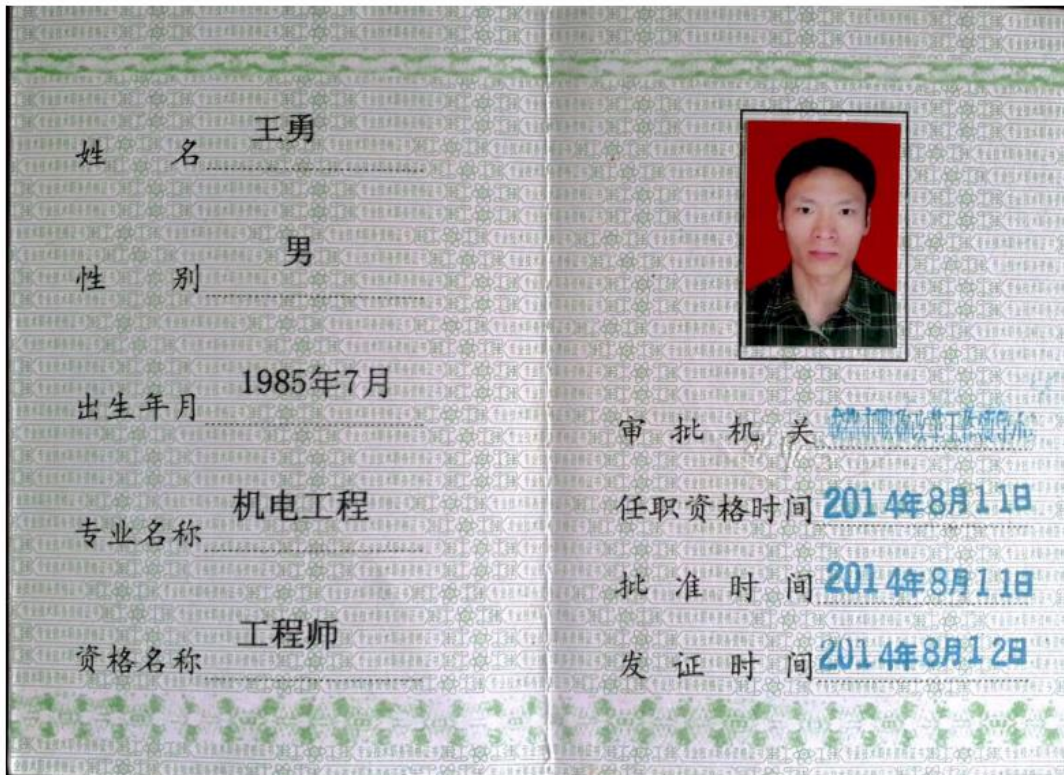 姓 名 王勇
性 别 男
出生年月 1985年7月
专业名称 机电工程
资格名称 工程师
审批机关
任职资格时间 2014年8月11日
批准时间 2014年8月11日
发证时间 2014年8月12日